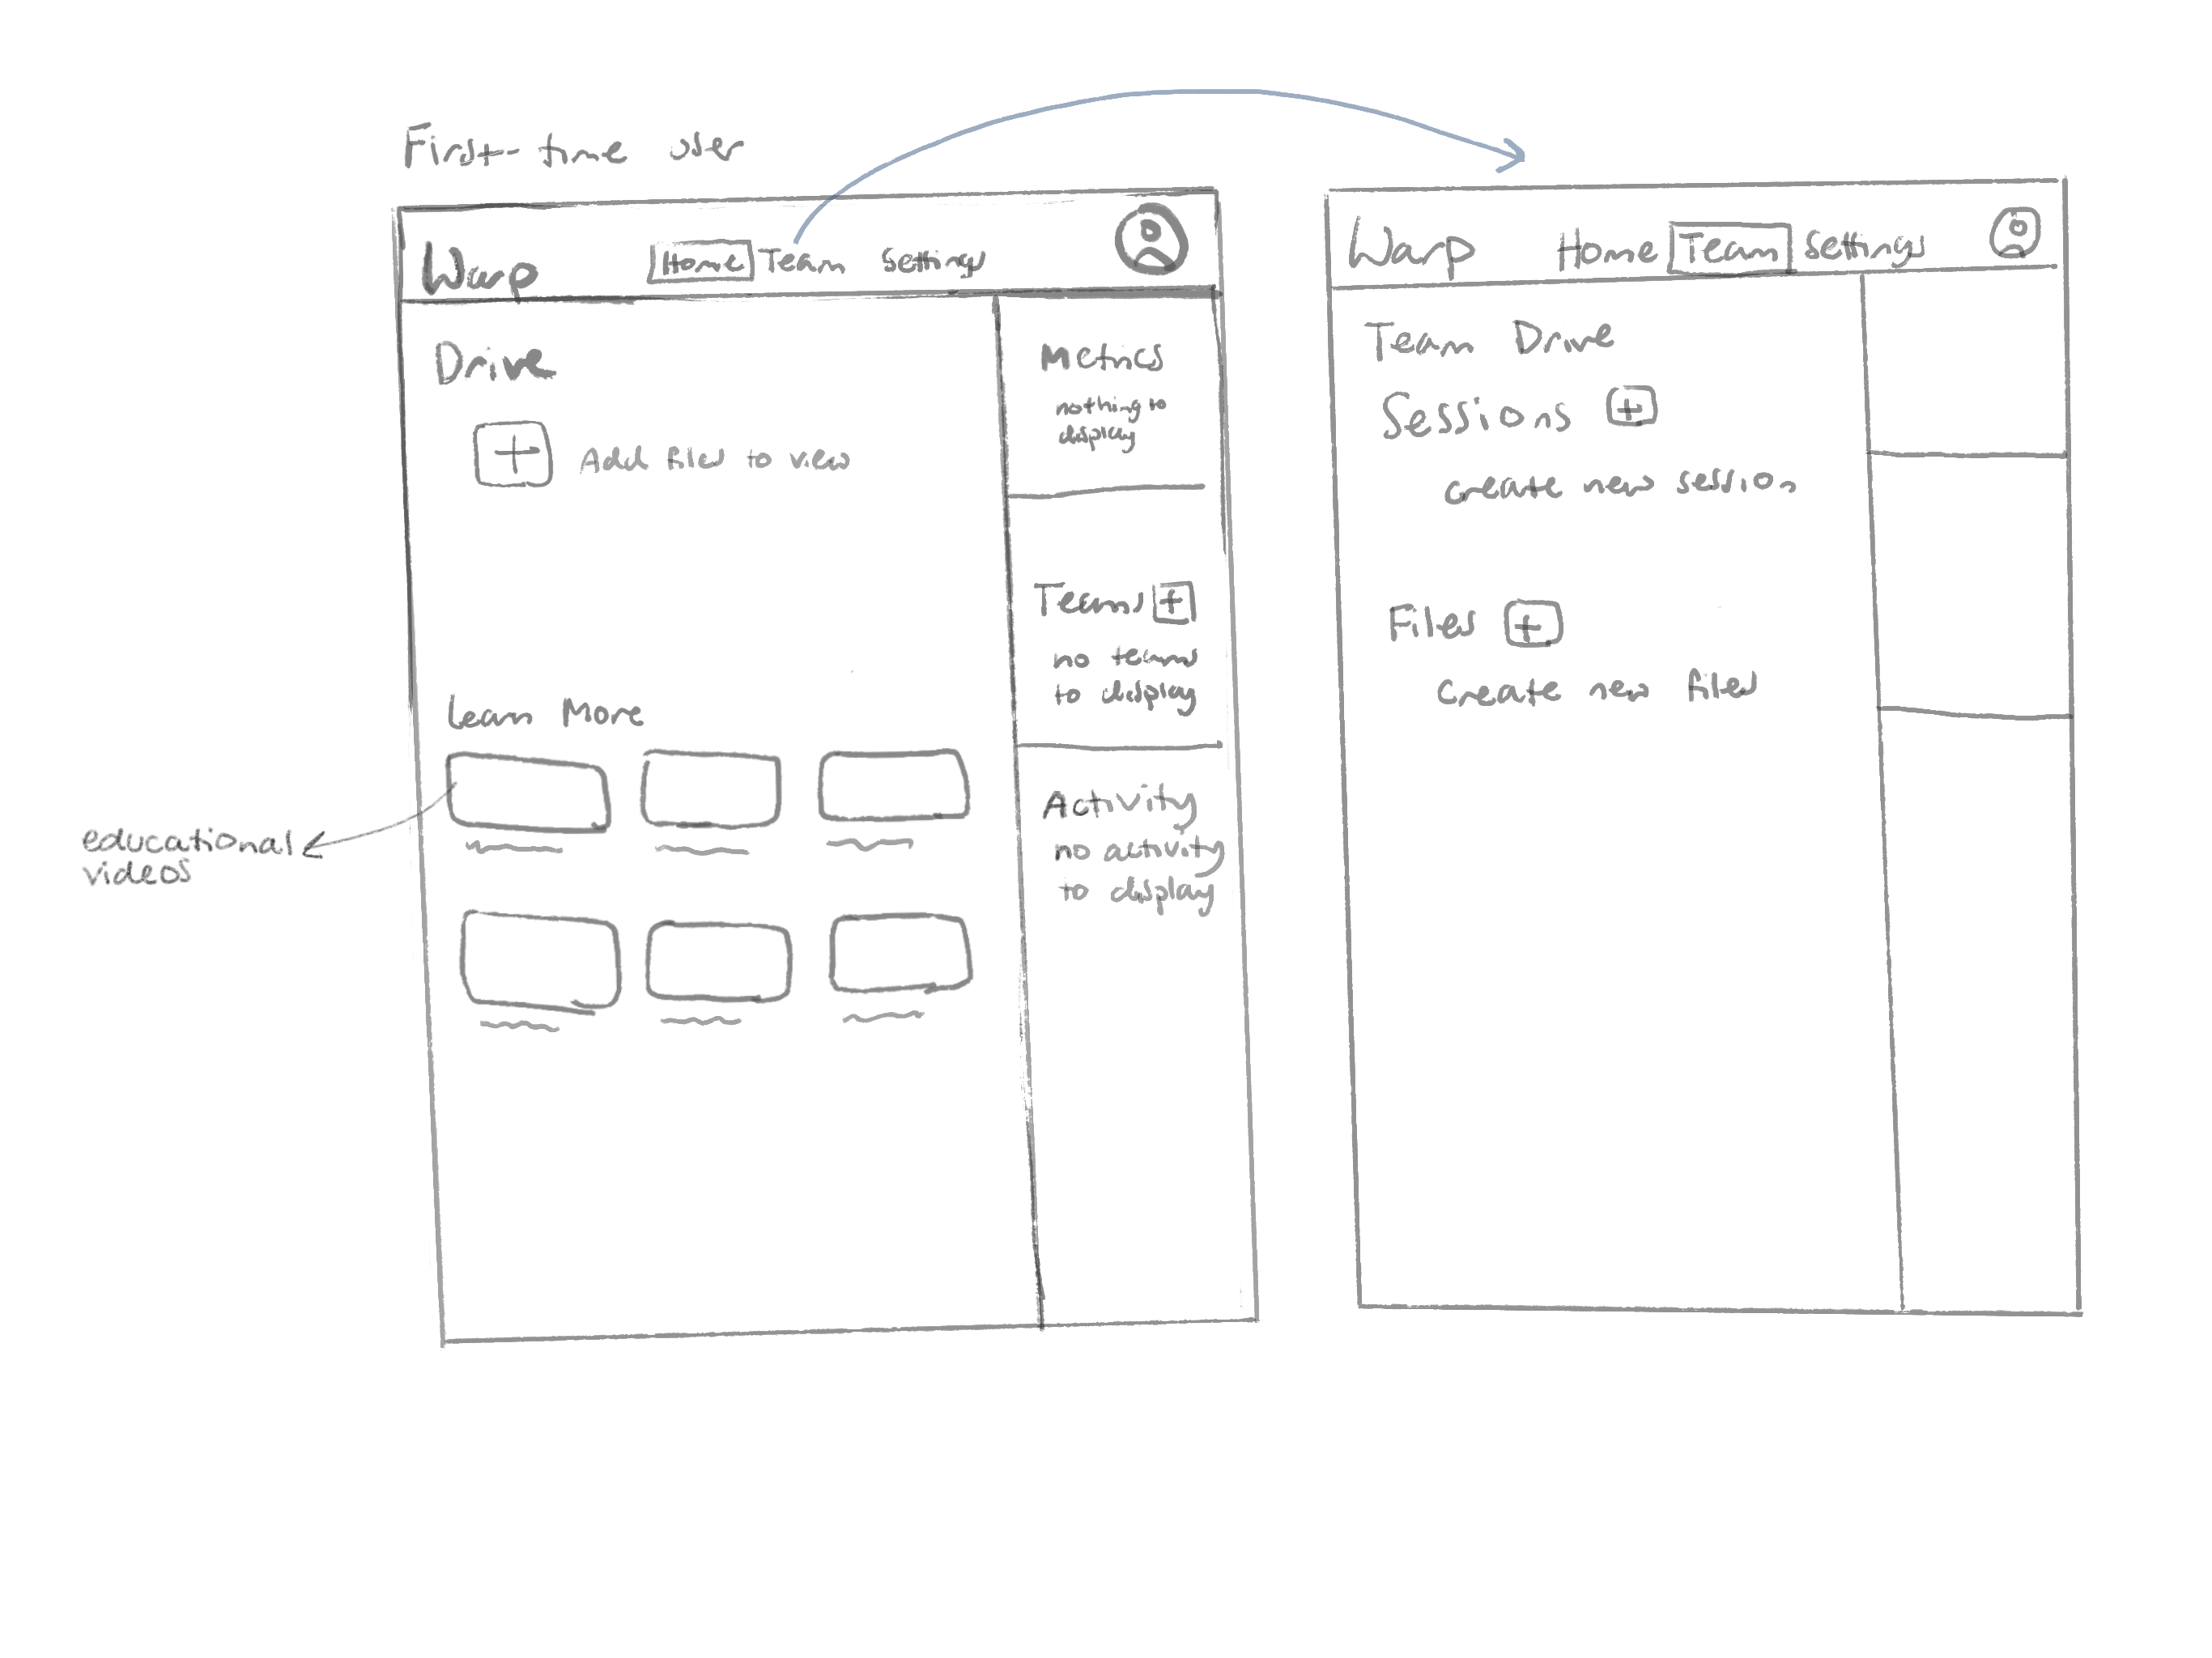 First-time user
Warp Home Team Settings
Drive
Add files to view
Learn More
educational
videos
Metrics
nothing to
display
Teams
no teams
to display
Activity
no activity
to display
Warp Home Team Settings
Team Drive
Sessions
create new session
Files
create new files